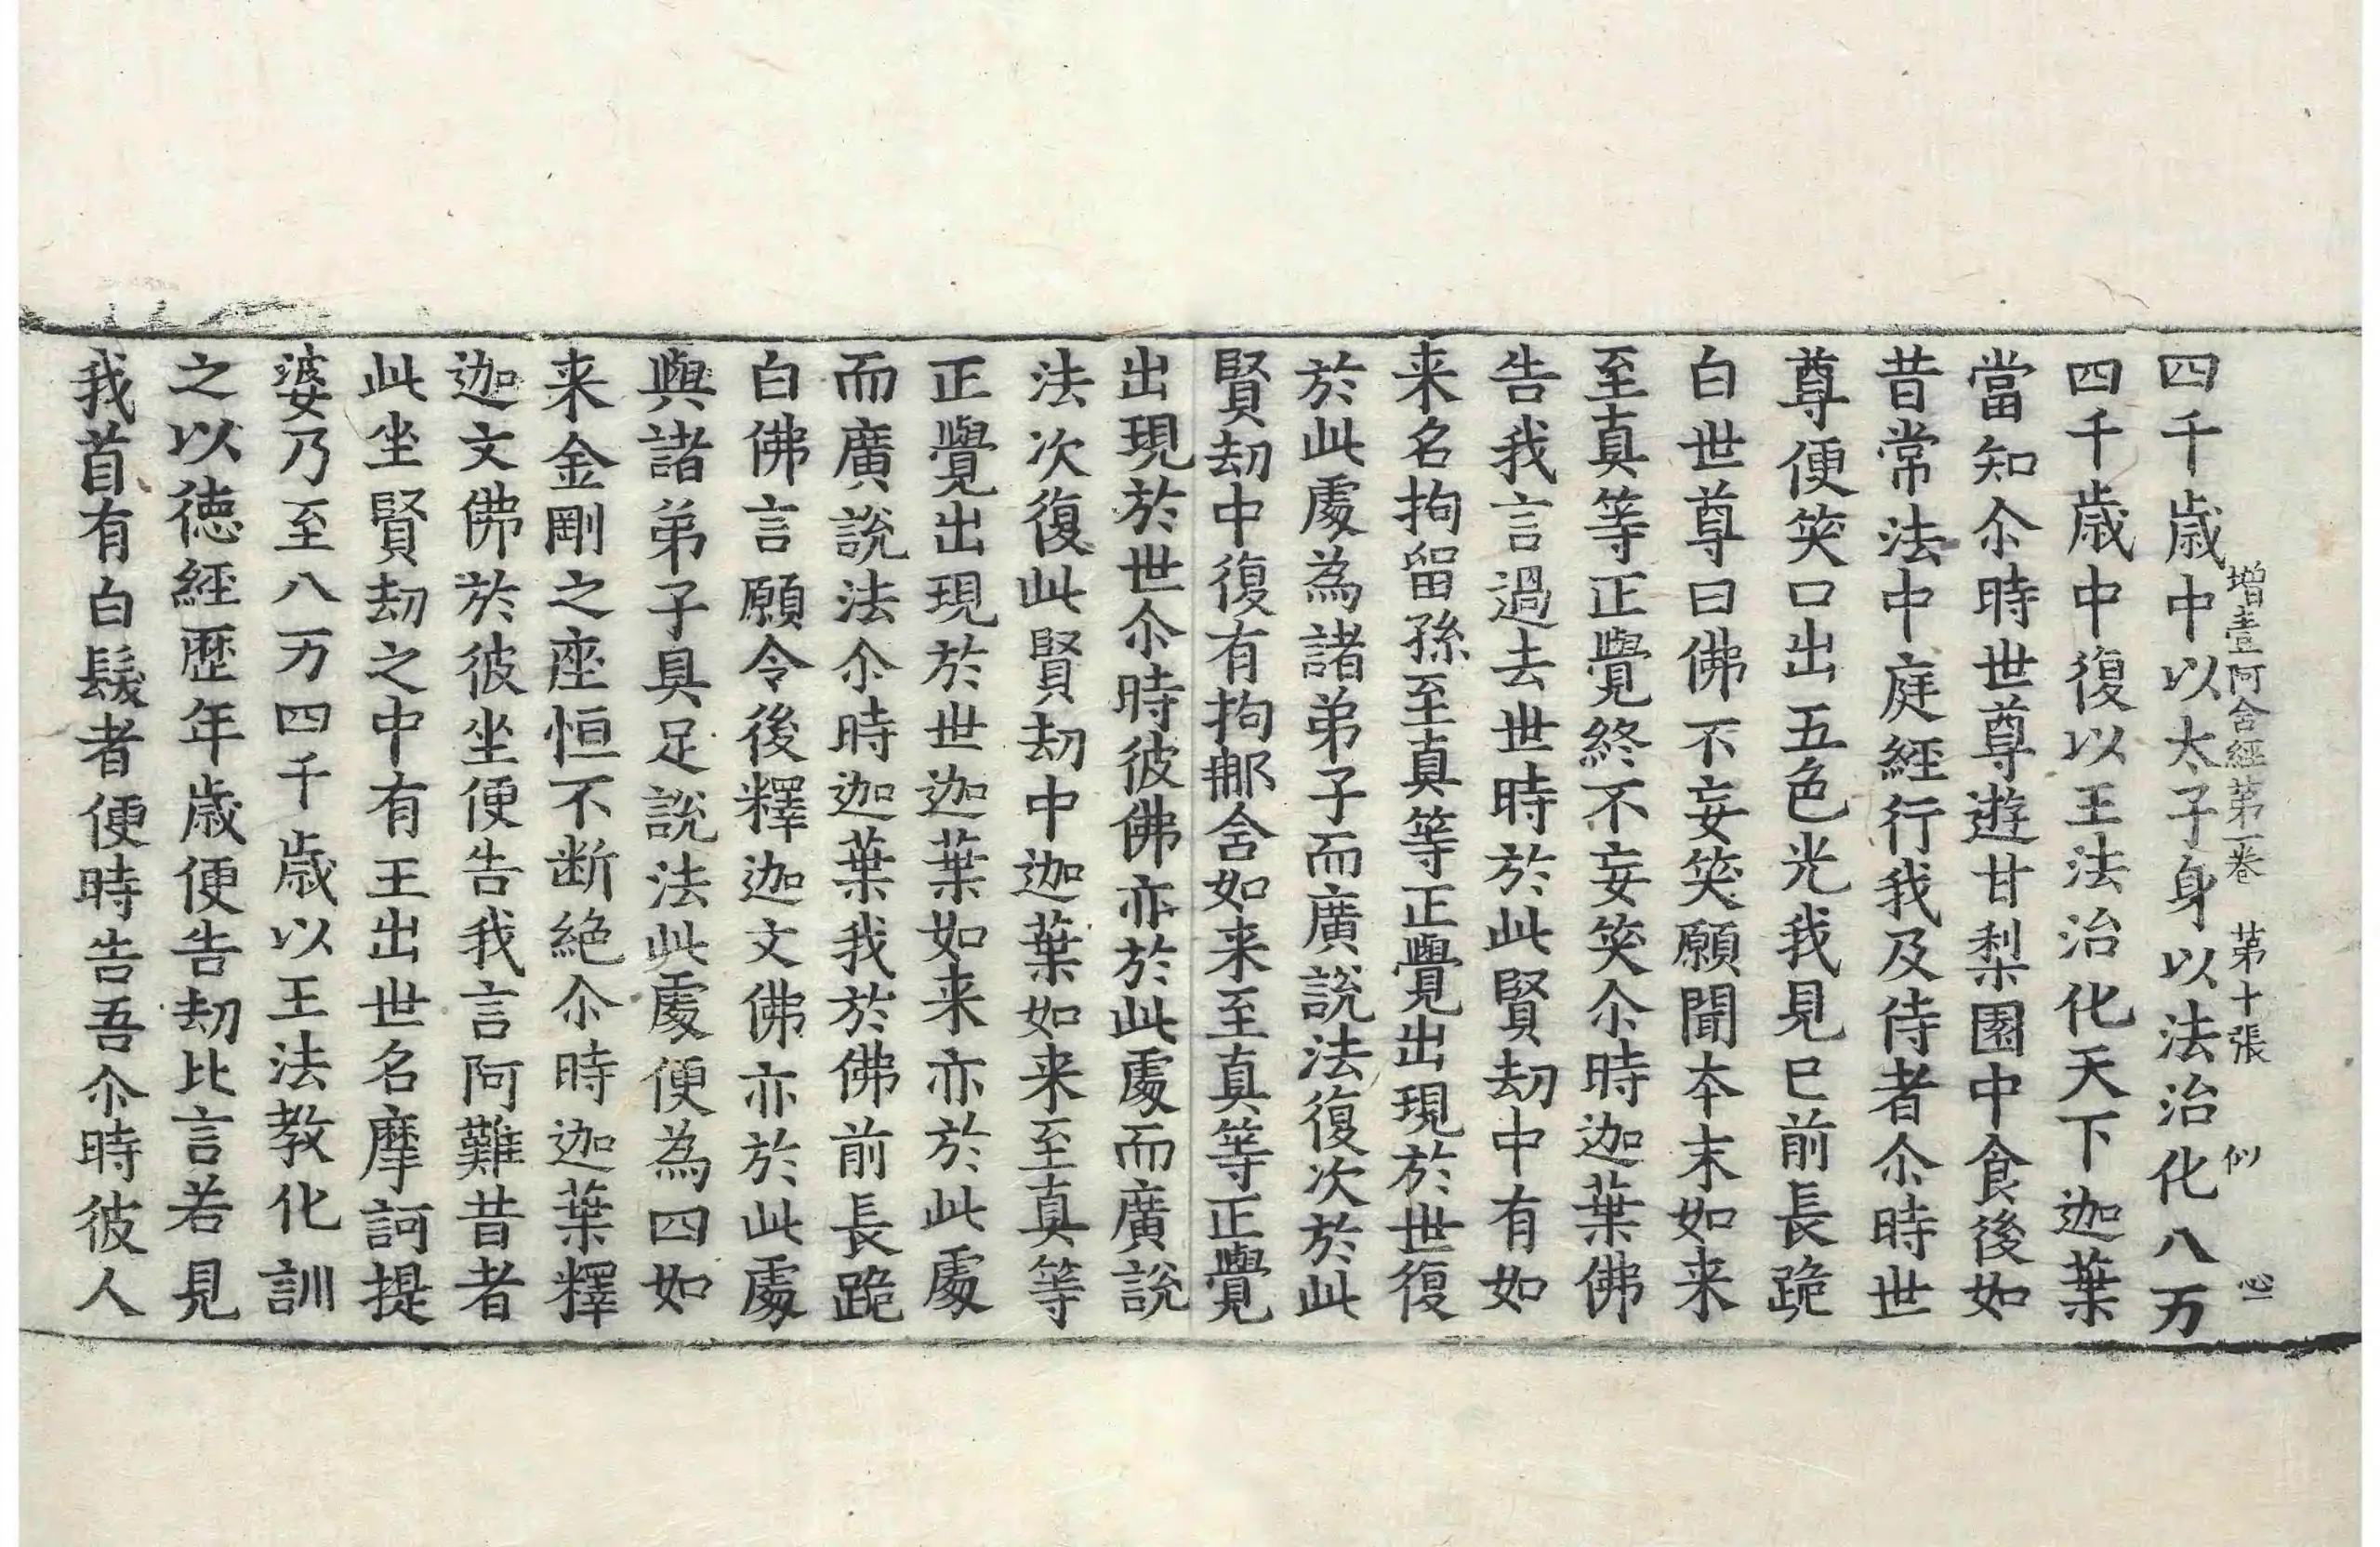 增壹阿含經第一卷 第十張 似 心
四千歲中以太子身以法治化八万
四千歲中復以王法治化天下迦葉
當知尒時世尊遊甘梨園中食後如
昔常法中庭經行我及侍者尒時世
尊便笑口出五色光我見已前長跪
白世尊曰佛不妄笑願聞本末如来
至真等正覺終不妄笑尒時迦葉佛
告我言過去世時於此賢劫中有如
来名拘留孫至真等正覺出現於世復
於此處為諸弟子而廣說法復次於此
賢劫中復有拘那舍如来至真等正覺
出現於世尒時彼佛亦於此處而廣說
法次復此賢劫中迦葉如来至真等
正覺出現於世迦葉如来亦於此處
而廣說法尒時迦葉我於佛前長跪
白佛言願令後釋迦文佛亦於此處
與諸弟子具足說法此處便為四如
来金剛之座恒不断絕尒時迦葉釋
迦文佛於彼坐便告我言阿難昔者
此坐賢劫之中有王出世名摩訶提
婆乃至八万四千歲以王法教化訓
之以德經歷年歲便告劫比言若見
我首有白髮者便時告吾尒時彼人